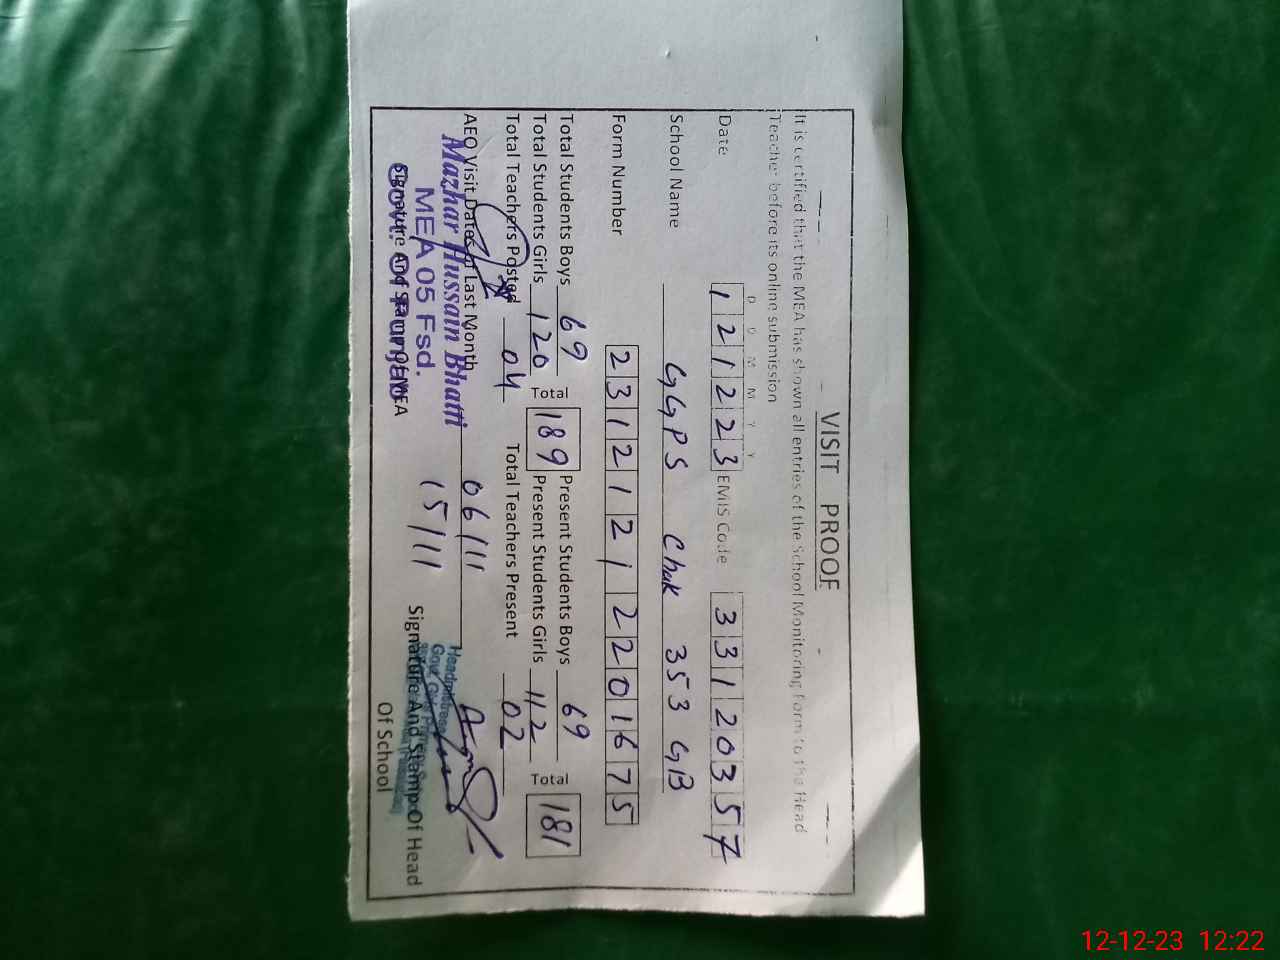 VISIT PROOF
It is certified that the MEA has shown all entries of the School Monitoring Form to the Head
Teacher before its online submission
D D M M Y Y
Date 121223 EMIS Code 33120357
School Name GGPS Chak 353 GB
Form Number 23121212201675
Total Students Boys 69 Present Students Boys 69
Total Students Girls 120 Total 189 Present Students Girls 112 Total 181
Total Teachers Posted 04 Total Teachers Present 02
AEO Visit Dates of Last Month 06/11
15/11
Mazhar Hussain Bhatti
MEA 05 Fsd.
Govt. Of Punjab
Signature And Stamp Of MEA
Headmistress
Signature And Stamp Of Head
Of School
12-12-23 12:22